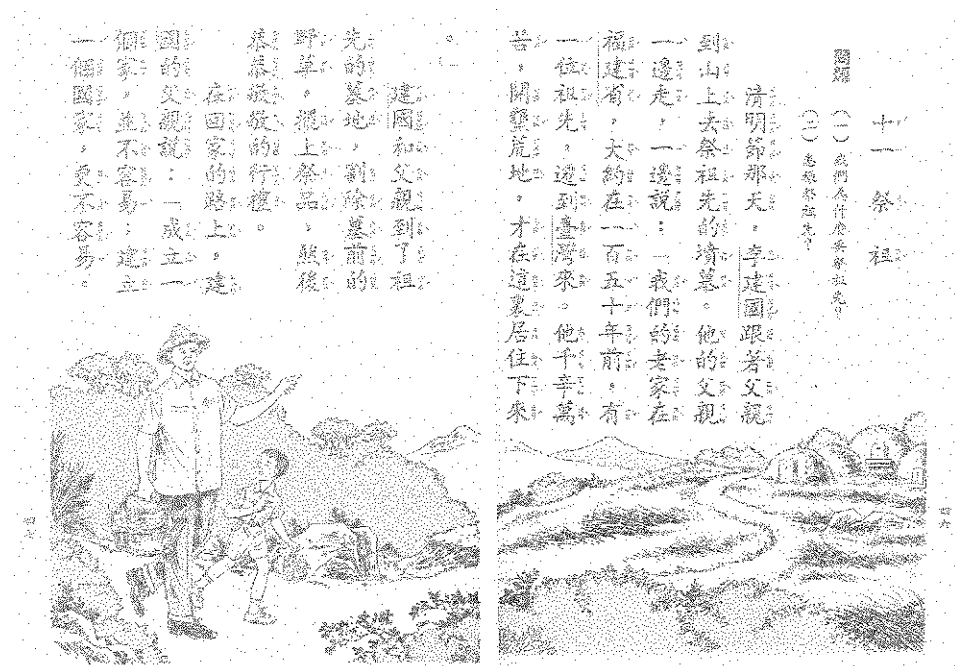 十一 祭祖
(一)我們為什麼要祭祖先?
(二)怎樣祭祖先?
清明節那天,李建國跟著父親
到山上去祭祖先的墳墓。他的父親
一邊走,一邊說:「我們的老家在
福建省,大約在一百五十年前,有
一位祖先,遷到臺灣來。他千辛萬
苦,開墾荒地,才在這裏居住下來
。
建國和父親到了祖
先的墓地,割除墓前的
野草,擺上祭品,然後
恭恭敬敬的行禮。
在回家的路上,建
國的父親說:「成立一
個家,並不容易;建立
一個國家,更不容易。
四六